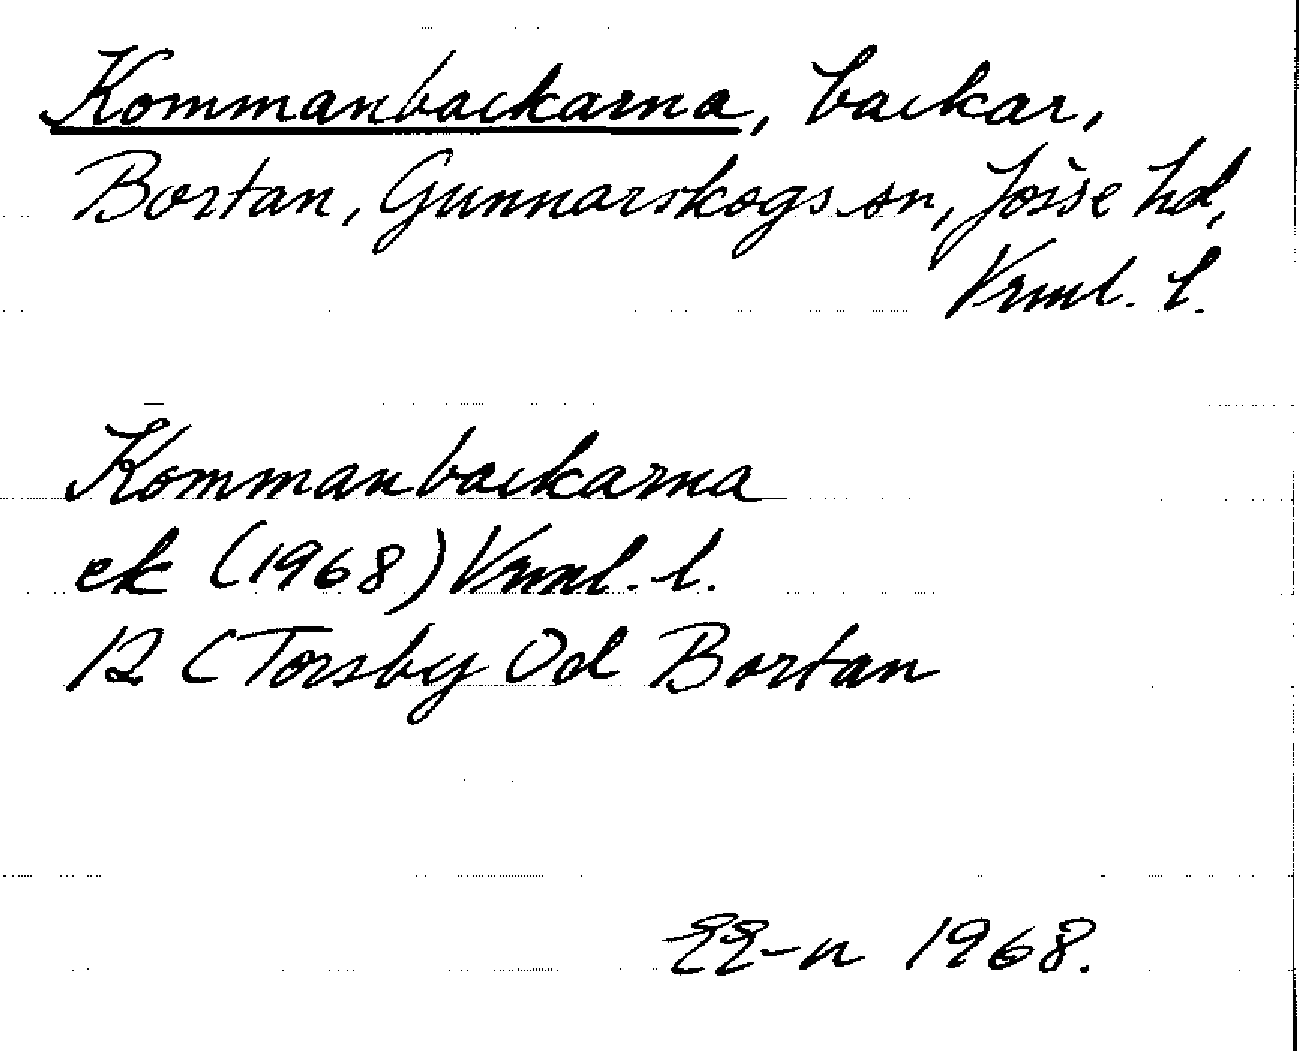 Kommanbackarna, backar,
Bortan, Gunnarskogs sn, Jösse hd,
Vrml. l.
Kommanbackarna
ek (1968) Vrml. l.
12 C Torsby Od Bortan
EE-n 1968.